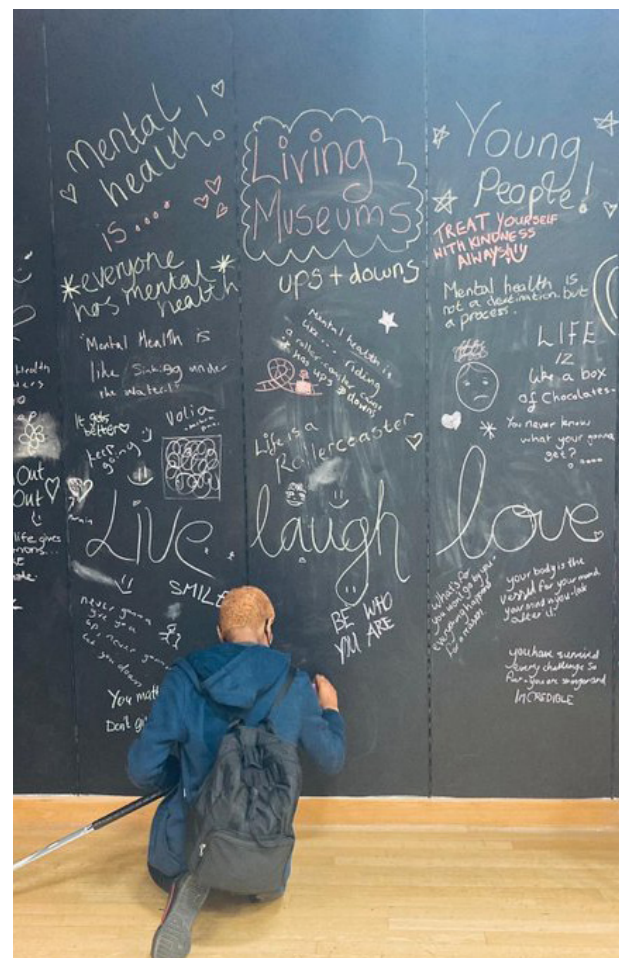 mental
health!
is....
*everyone
has mental*
health
"Mental Health is
like Sinking under
the water."
It gets
better
keep
going
Volia
Out
Out
life gives
Live
SMILE
never gonna
give you
up never gonna
let you down
You
Don't
Living
Museums
ups + downs
Mental health is
like... riding
a roller coaster cause
has ups
+ downs
Life is a
Rollercoaster
laugh
BE WHO
YOU ARE
Young
People!
TREAT YOURSELF
WITH KINDNESS
ALWAYS!!
Mental health is
not a destination. but
a process.
LIFE
IZ
like a box
of Chocolates.
You never know
what your gonna
get?.....
love
what's for
you won't go by you.
everything happens
for a reason
your body is the
vessel for your mind
your mind is you-look
after it.
you have survived
every challenge so
far. you are stronger and
INCREDIBLE